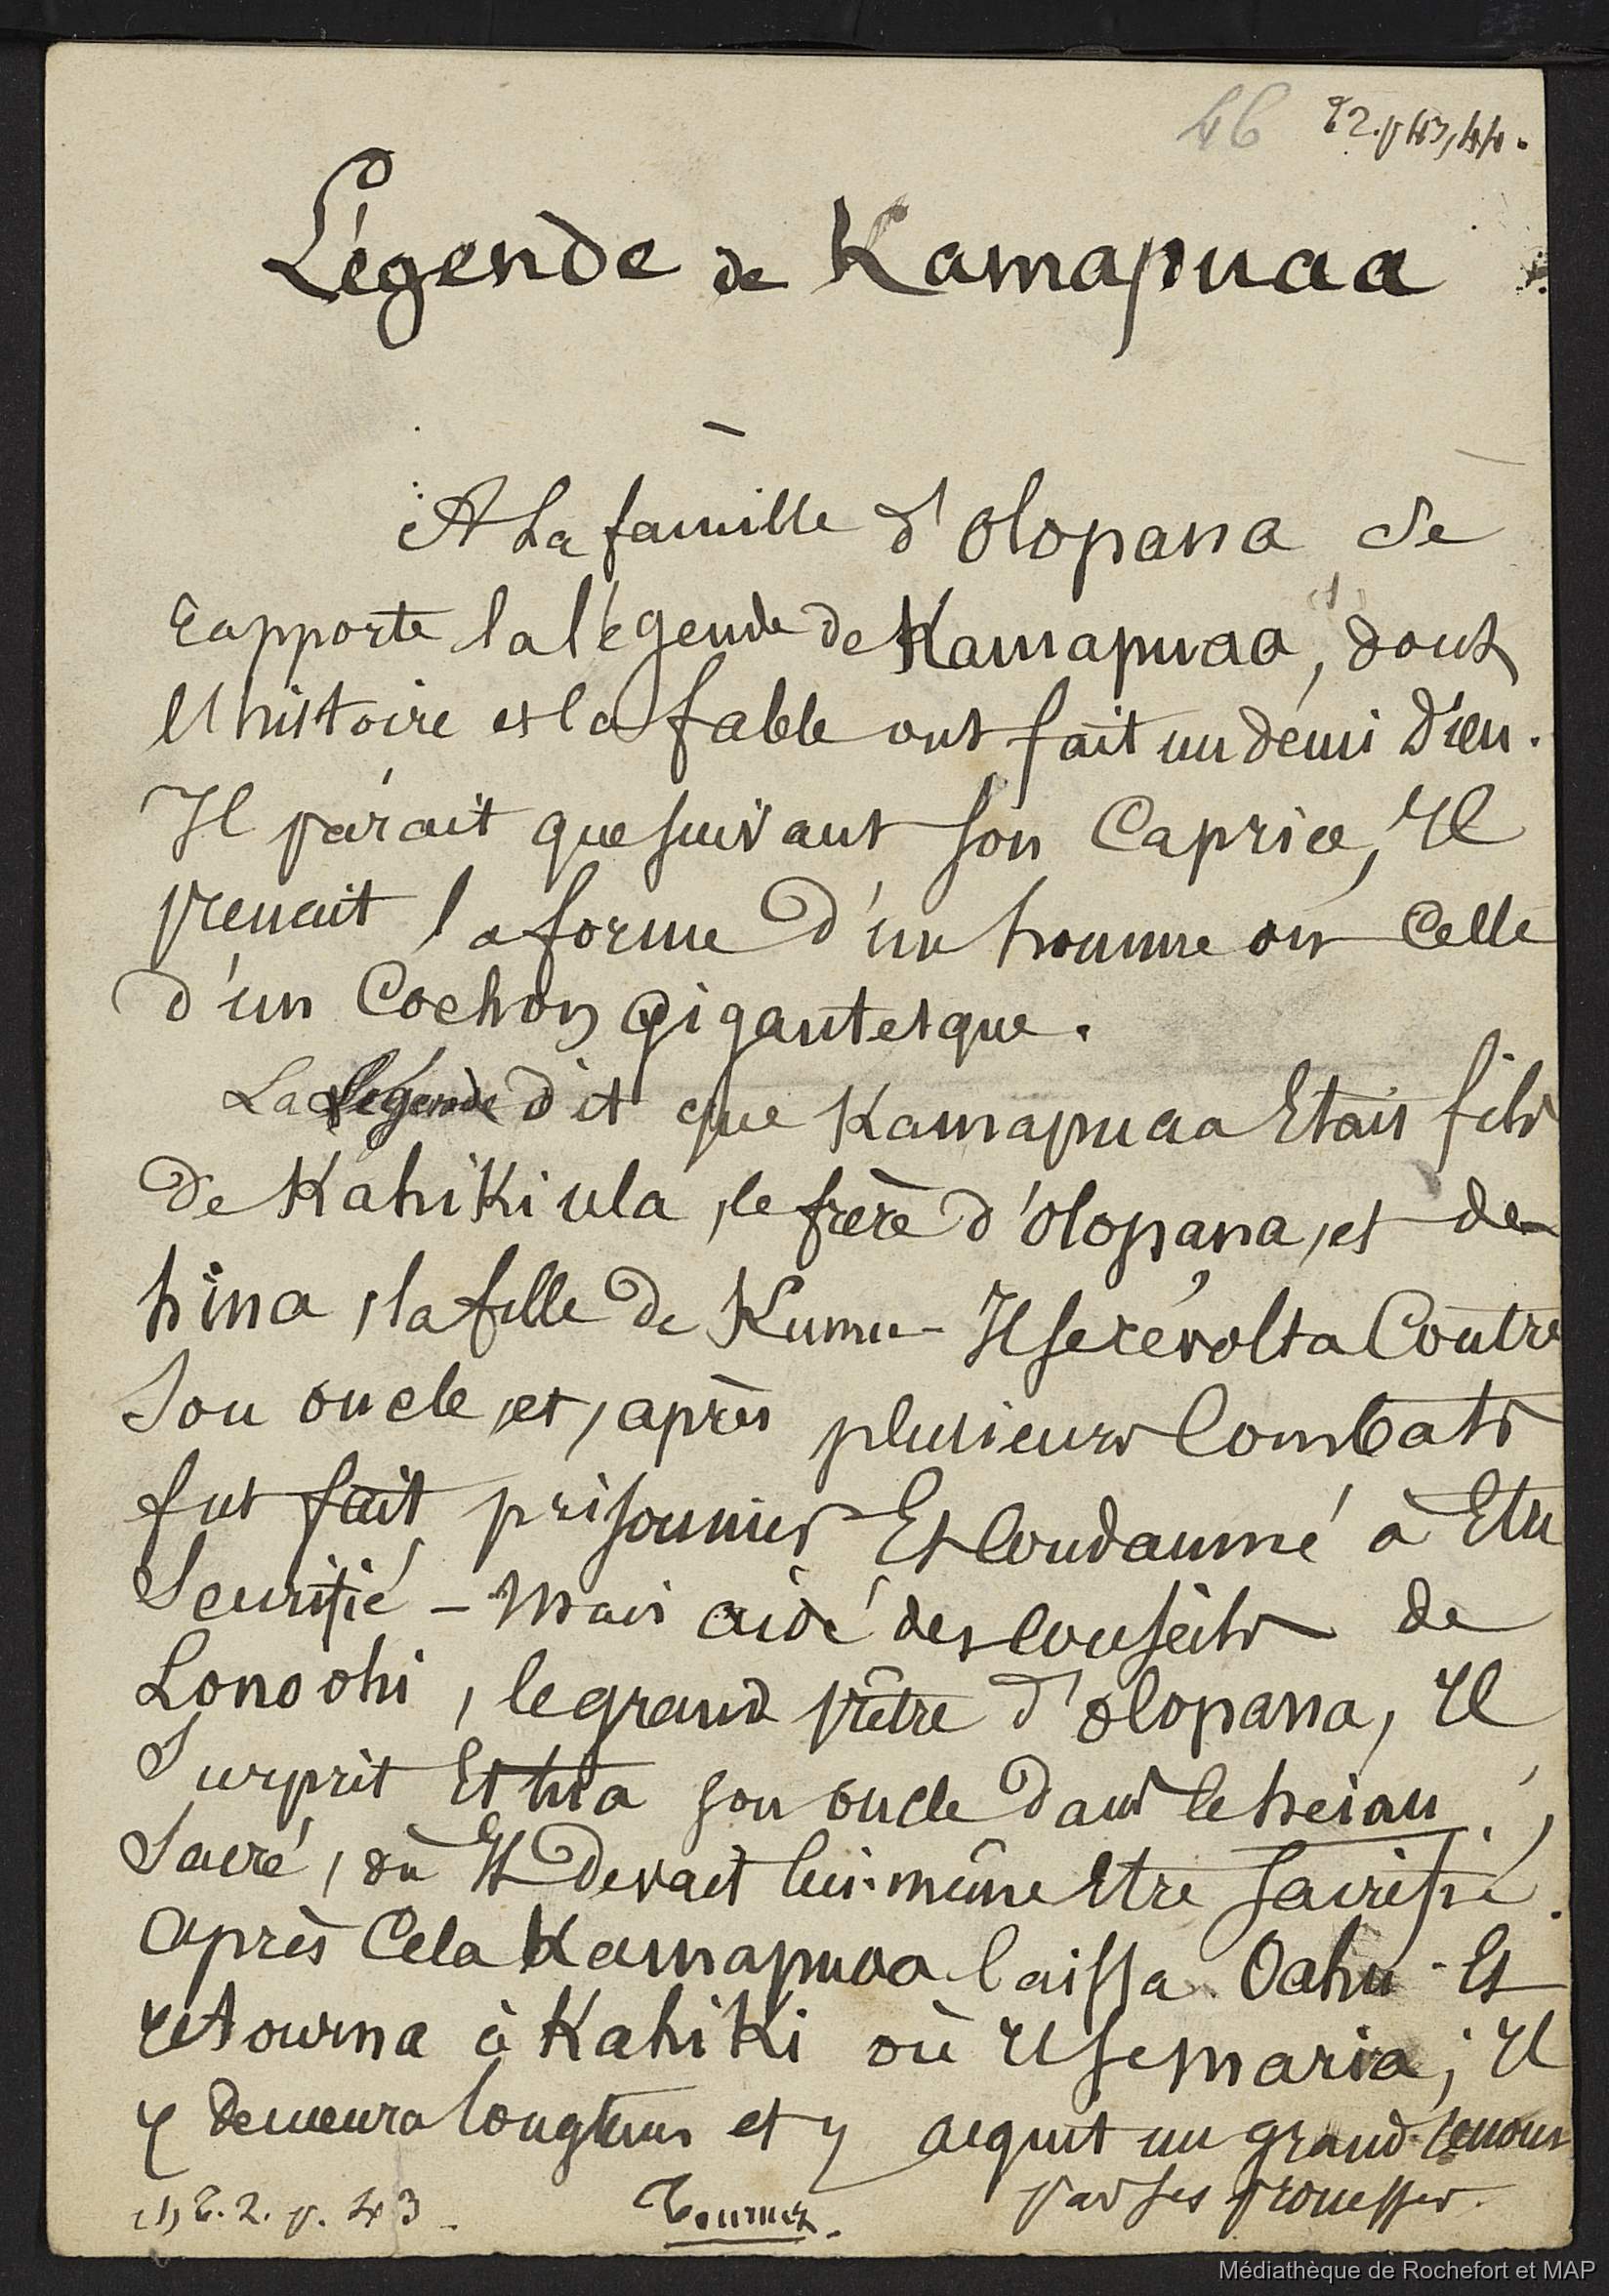 46 T2. p 43, 44.
Légende de Kamapuaa
A la famille d'Olopana se
rapporte la légende de Kamapuaa (1), dont
l'histoire et la fable ont fait un demi Dieu.
Il parait que suivant son Caprice, Il
prenait la forme d'un homme ou celle
d'un Cochon gigantesque.
La légende dit que Kamapuaa Etait fils
de Kahikiula, le frère d'Olopana, et de
hina, la fille de Kumu - Il se révolta Contre
son oncle, et, après plusieurs Combats
fut fait prisonnier Et Condamné à Etre
Sacrifié - Mais aidé des Conseils de
Lonoohi, le grand prêtre d'Olopana, Il
Surprit Et tua son oncle dans le heiau
Sacré, où Il devait lui-même Etre Sacrifié.
Après Cela Kamapuaa laissa Oahu Et
retourna à Kahiki où Il se maria; Il
y demeura longtems et y acquit un grand renom
par ses prouesses.
(1) T. 2. p. 43.
Tournez.
Médiathèque de Rochefort et MAP